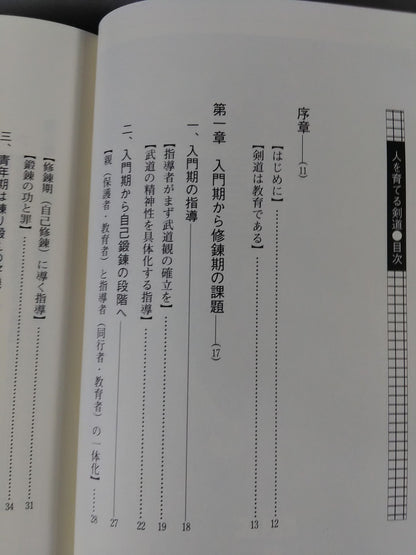 人を育てる剣道●目次
序章──(11)
【はじめに】………12
【剣道は教育である】………13
第一章 入門期から修錬期の課題──(17)
一、入門期の指導──18
【指導者がまず武道観の確立を】………19
【武道の精神性を具体化する指導】………22
二、入門期から自己鍛錬の段階へ──27
【親(保護者・教育者)と指導者(同行者・教育者)の一体化】………28
【修錬期(自己修錬)に導く指導】………31
【鍛錬の功と罪】………34
三、青年期は練り鍛